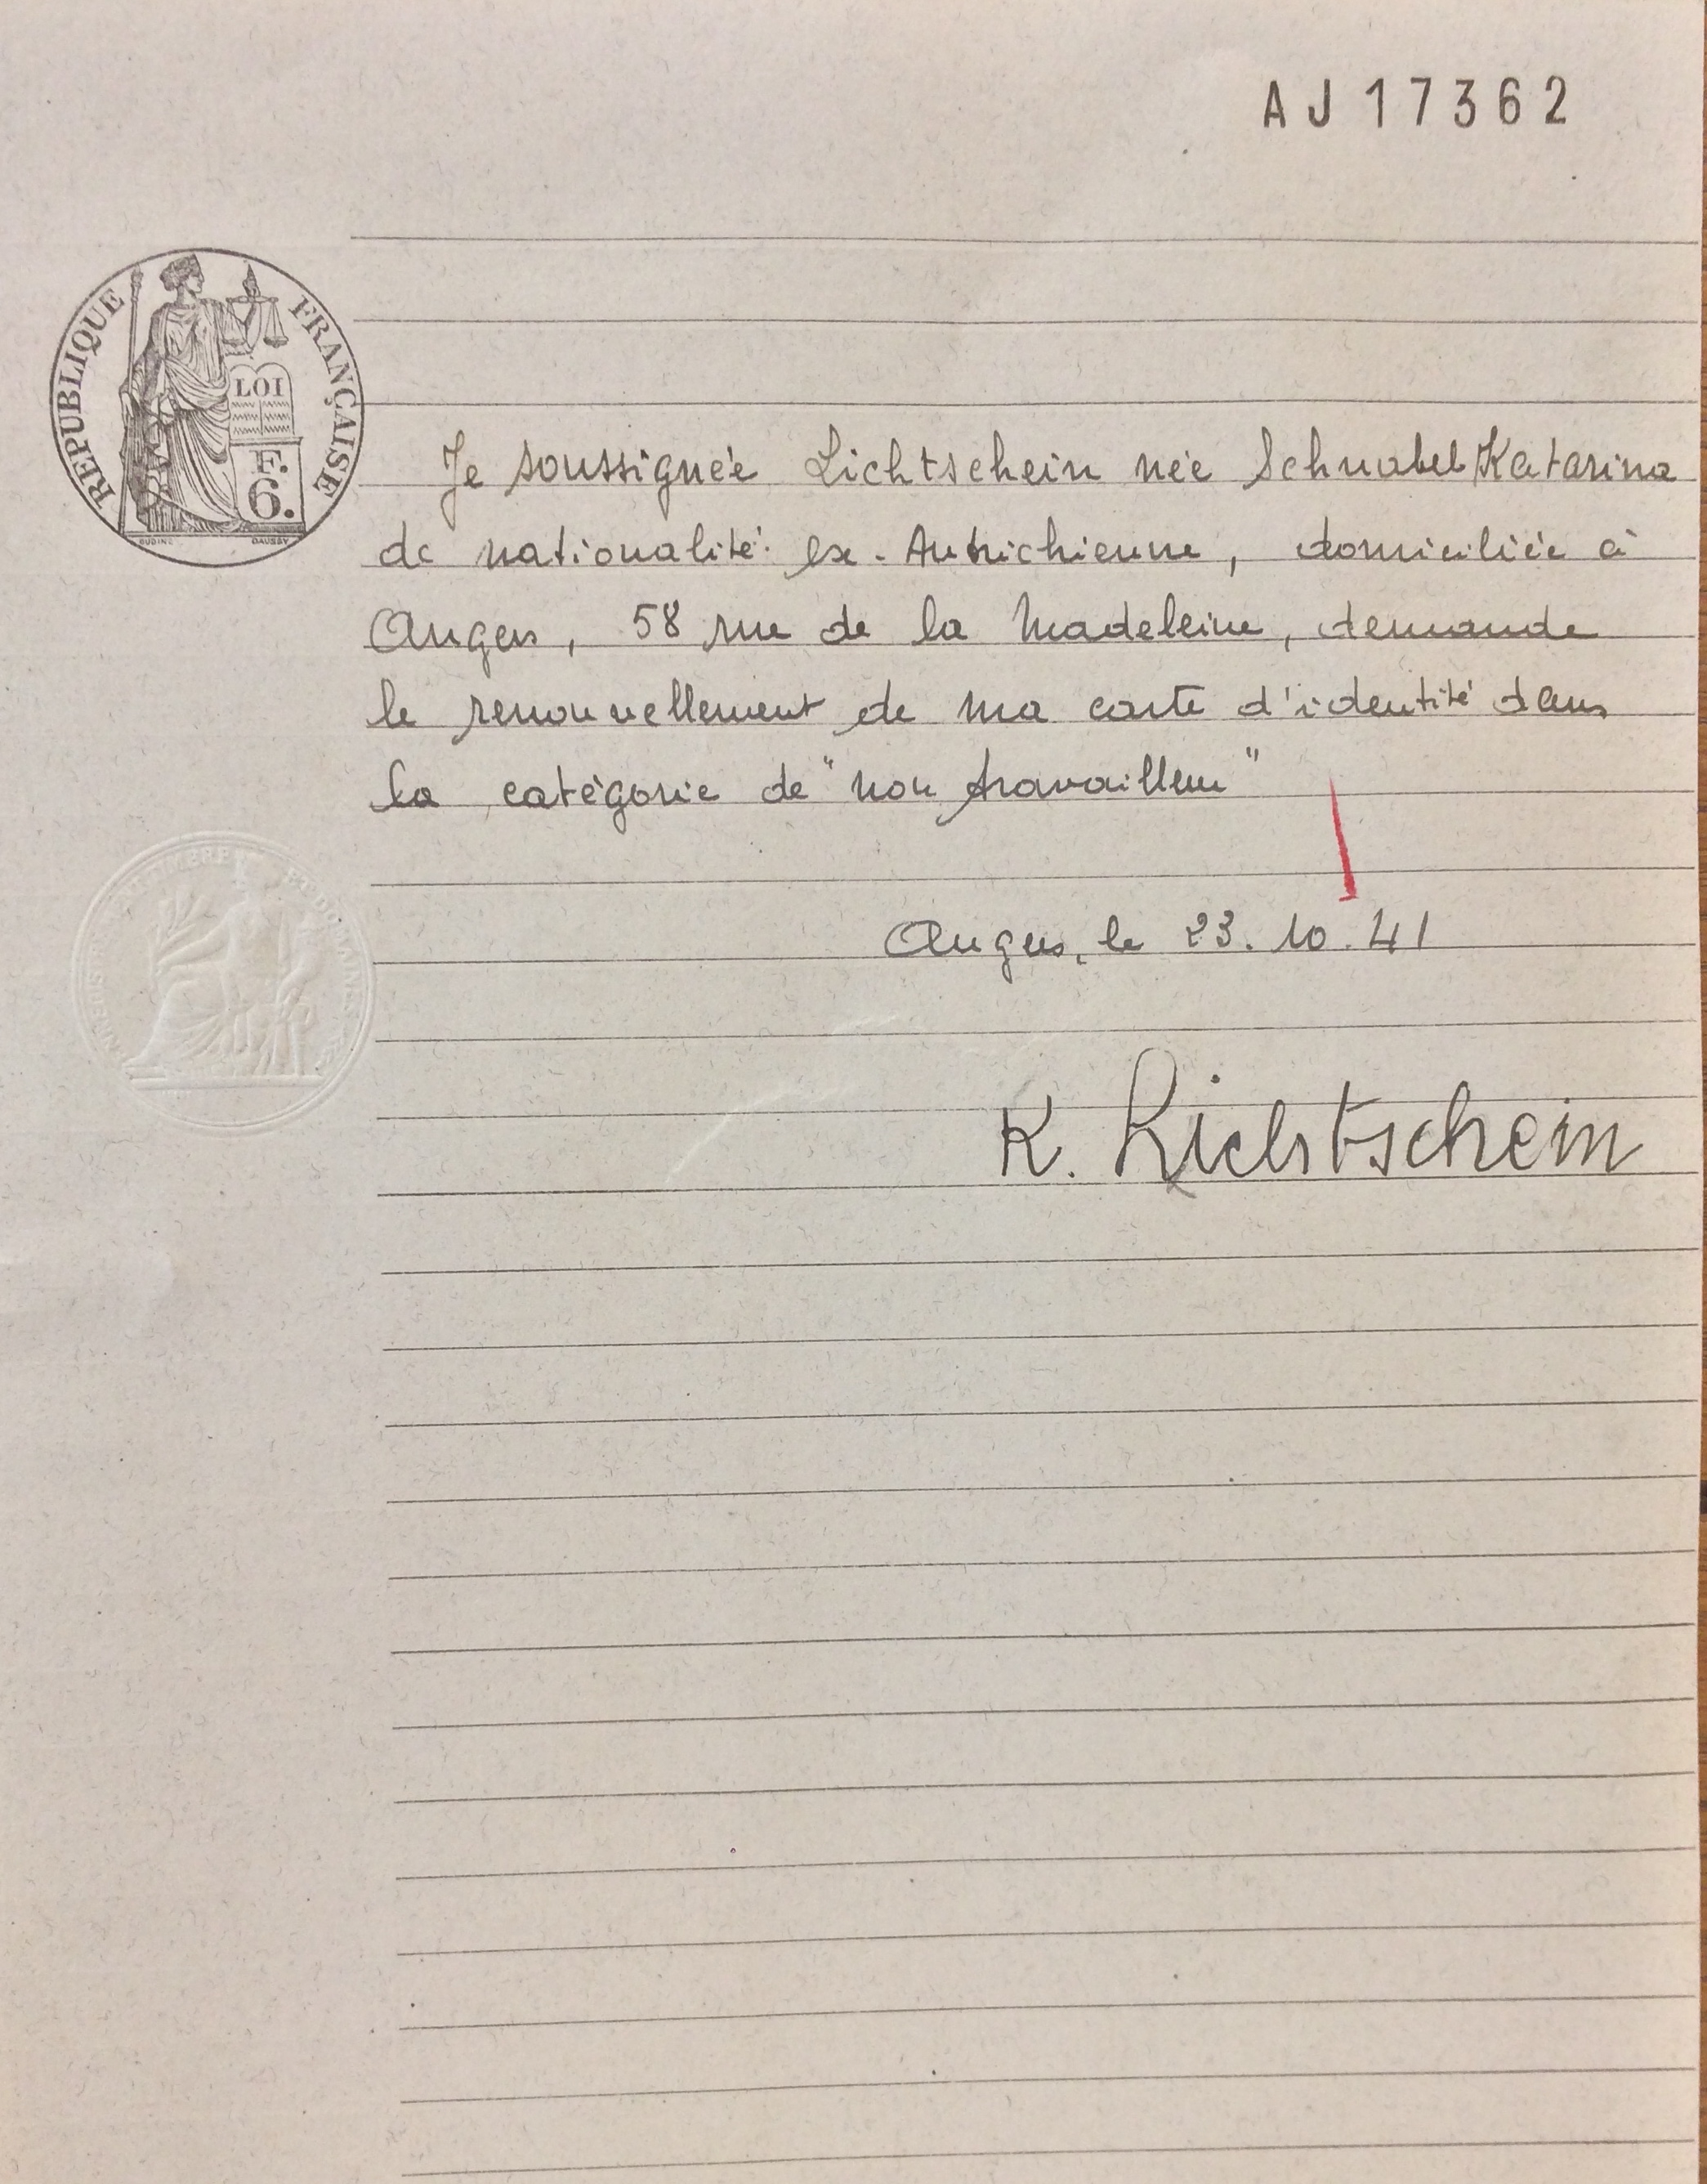 AJ 17362
RÉPUBLIQUE FRANÇAISE
LOI
F.
6.
OUDINÉ DAUSSY
Je soussignée Lichtschein née Schnabel Katarina
de nationalité ex-Autrichienne, domiciliée à
Angers, 58 rue de la Madeleine, demande
le renouvellement de ma carte d'identité dans
la catégorie de "non travailleur"
Angers, le 23.10.41
K. Lichtschein